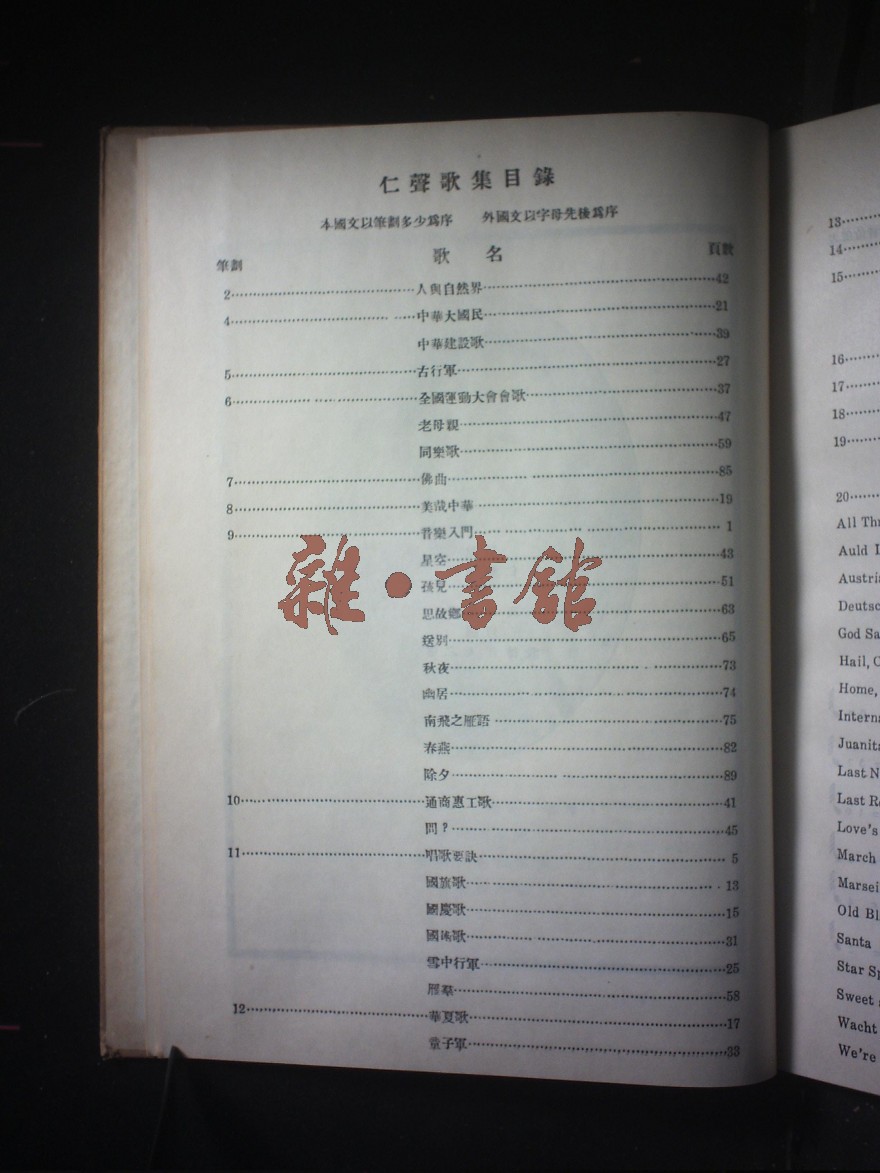 仁聲歌集目錄
本國文以筆劃多少爲序 外國文以字母先後爲序
筆劃 歌名 頁數
2 人與自然界 42
4 中華大國民 21
中華建設歌 39
5 古行軍 27
6 全國運動大會會歌 37
老母親 47
同樂歌 59
7 佛曲 85
8 美哉中華 19
9 音樂入門 1
星空 43
孩兒 51
思故鄉 63
送別 65
秋夜 73
幽居 74
南飛之雁語 75
春燕 82
除夕 89
10 通商惠工歌 41
問? 45
11 唱歌要訣 5
國旗歌 13
國慶歌 15
國恥歌 31
雪中行軍 25
雁羣 58
12 華夏歌 17
童子軍 33
雜·書館
13
14
15
16
17
18
19
20
All
Auld
Deutsc
God
Hail,
Home,
Last
Last
Love's
March
Old
Santa
Star
Sweet
Wacht
We're